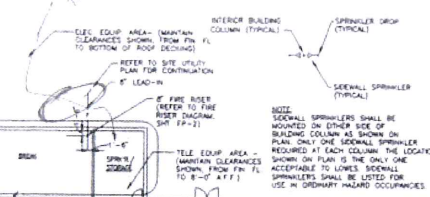 ELEC EQUIP AREA- (MAINTAIN
CLEARANCES SHOWN, FROM FIN FL
TO BOTTOM OF ROOF DECKING)
REFER TO SITE UTILITY
PLAN FOR CONTINUATION
8" LEAD-IN
8" FIRE RISER
(REFER TO FIRE
RISER DIAGRAM,
SHT FP-2)
1'-6"
BREAK
SPRK'R
STORAGE
TELE EQUIP AREA -
(MAINTAIN CLEARANCES
SHOWN, FROM FIN FL
TO 8'-0" AFF)
INTERIOR BUILDING
COLUMN (TYPICAL)
SPRINKLER DROP
(TYPICAL)
SIDEWALL SPRINKLER
(TYPICAL)
NOTE
SIDEWALL SPRINKLERS SHALL BE
MOUNTED ON EITHER SIDE OF
BUILDING COLUMN AS SHOWN ON
PLAN. ONLY ONE SIDEWALL SPRINKLER
REQUIRED AT EACH COLUMN. THE LOCATIO
SHOWN ON PLAN IS THE ONLY ONE
ACCEPTABLE TO LOWES. SIDEWALL
SPRINKLERS SHALL BE LISTED FOR
USE IN ORDINARY HAZARD OCCUPANCIES.